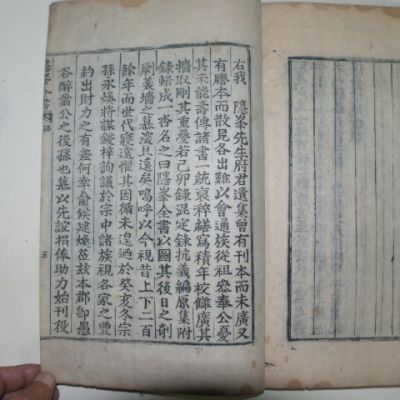 右我 隱峯先生府君遺集曾有刊本而未廣又
有謄本而散見各出難以會通族從祖 奉公憂
其未能壽傳諸書一統裒稡繕寫積年校讎廣其
搜取剛其重疊若己卯錄混定錄抗義編原集附
錄輯成一書名之曰隱峯全書以圖其後日之剞
劂羹墻之慕淩具溪矣嗚呼以今視昔上下二百
餘年而世代寢遠懼其因循未遑迺於癸亥冬宗
孫永 將謀鋟梓詢議於宗中諸族視各家之豊
約出財力之有差何幸 侯建 莅玆本郡卽愚
谷醉翁公之後孫也慕以先誼捐俸助力始刊役
五